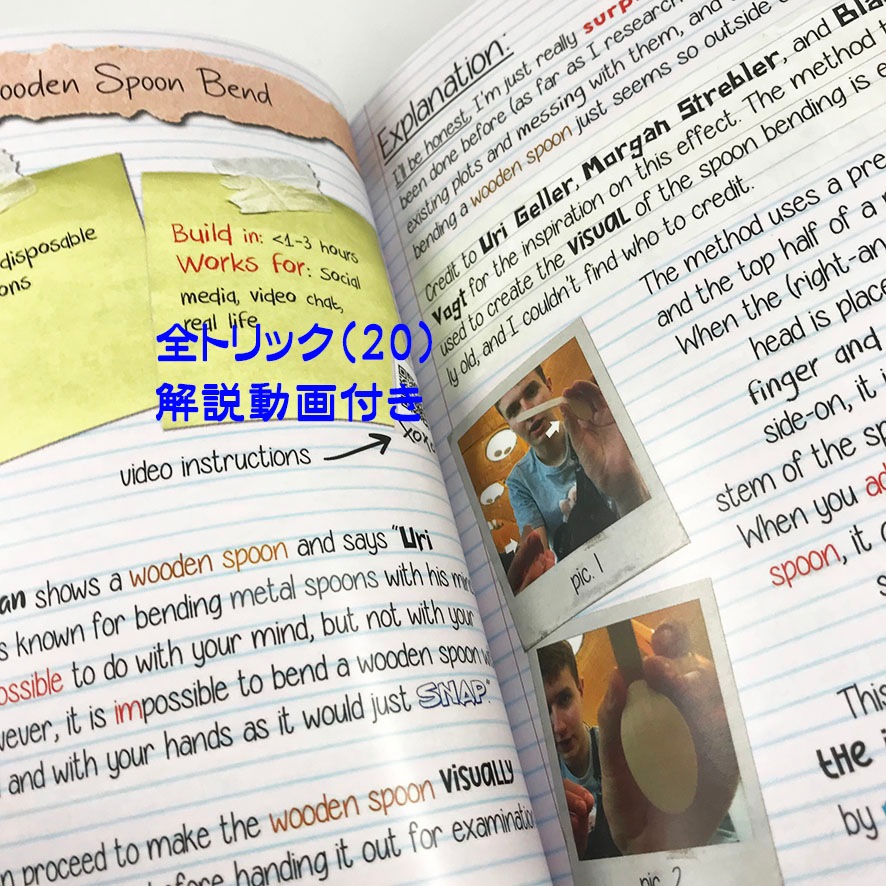 Wooden Spoon Bend
disposable
Build in: <1-3 hours
Works for: social
media, video chat,
real life
全トリック(20)
解説動画付き
video instructions
shows a wooden spoon and says "Uri
known for bending metal spoons with his
to do with your mind, but not with your
it is impossible to bend a wooden spoon
and with your hands as it would just SNAP."
proceed to make the wooden spoon visually
before handing it out for examination
Explanation:
I'll be honest, I'm just really
been done before (as far as I research
existing plots and messing with them, and
bending a wooden spoon just seems so outside
Credit to Uri Geller, Morgan Strebler, and
Vogt for the inspiration on this effect. The method
used to create the visual of the spoon bending is
ly old, and I couldn't find who to credit.
The method uses a
and the top half of a
When the (right-
head is
finger and
side-on, it
stem of the
When you
spoon, it
pic. 1
This
the
by
pic. 2